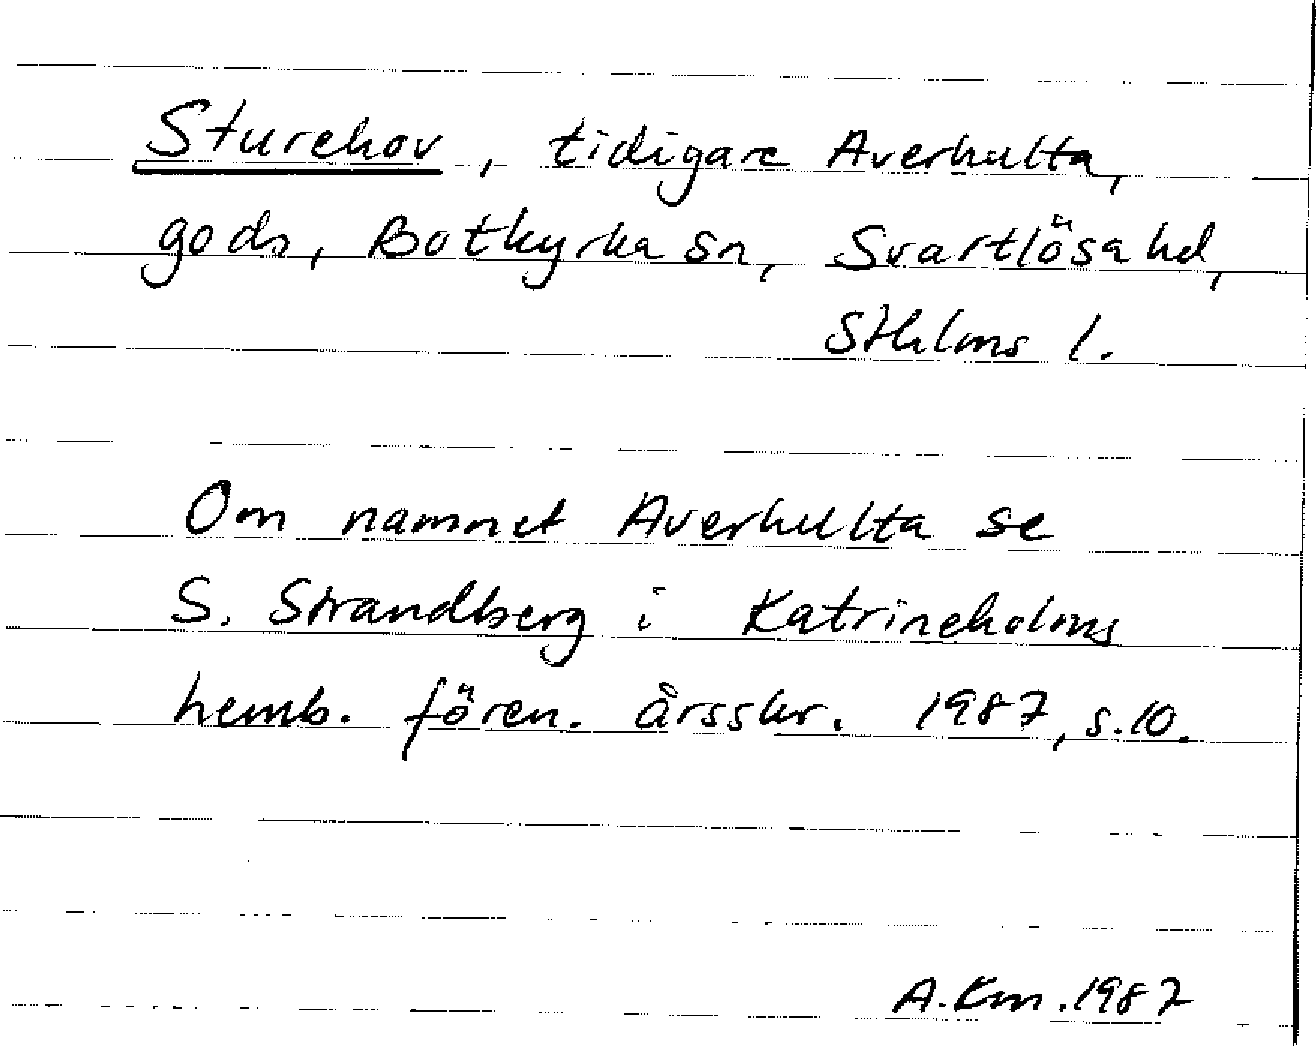 Sturehov, tidigare Averhulta,
gods, Botkyrka sn, Svartlösa hd,
Sthlms l.
Om namnet Averhulta se
S. Strandberg i Katrineholms
hemb. fören. årsskr. 1987, s.10.
A.Km.1987